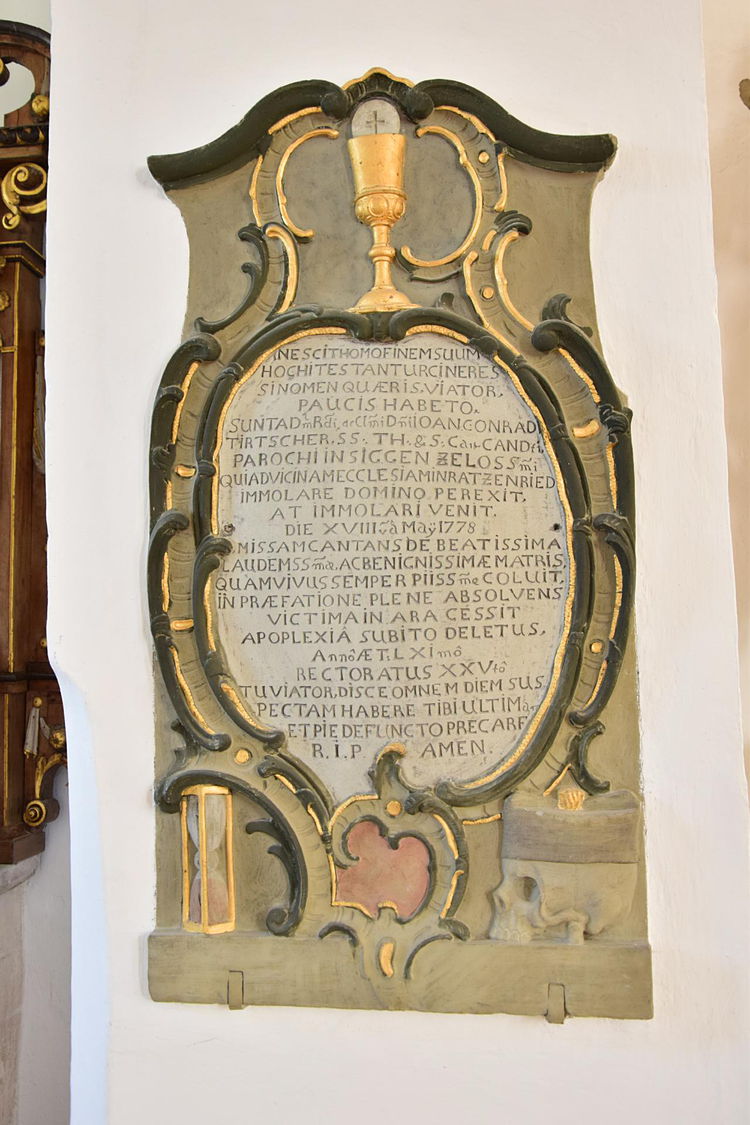 NESCIT HOMO FINEM SUUM
HOC HIC TESTANTUR CINERES
SI NOMEN QUÆRIS. VIATOR.
PAUCIS HABETO.
SUNT ADm̃. Rd̃i, ac Cl̃m̃i Dñi IOAN CONRAD
TIRTSCHER. S S. TH. & S. Can. CAND ti.
PAROCHI IN SIGGEN ZELOSSm̃i
QUI AD VICINAM ECCLESIAM IN RATZENRIED
IMMOLARE DOMINO PEREXIT.
AT IMMOLARI VENIT.
DIE XVIII và Maÿ 1778
MISSAM CANTANS DE BEATISSIMA
LAUDEMSSm̃a, AC BENIGNISSIMÆ MATRIS,
QUAM VIVUS SEMPER PIISSm̃e COLUIT.
IN PRÆFATIONE PLENE ABSOLVENS
VICTIMA IN ARA CESSIT
APOPLEXIÂ SUBITO DELETUS.
Annô ÆT. LXImô
RECTORATUS XXVtô
TU VIATOR, DISCE OMNEM DIEM SUS
PECTAM HABERE TIBI ULTIMã,
ET PIE DEFUNCTO PRECARE
R. I. P. AMEN.